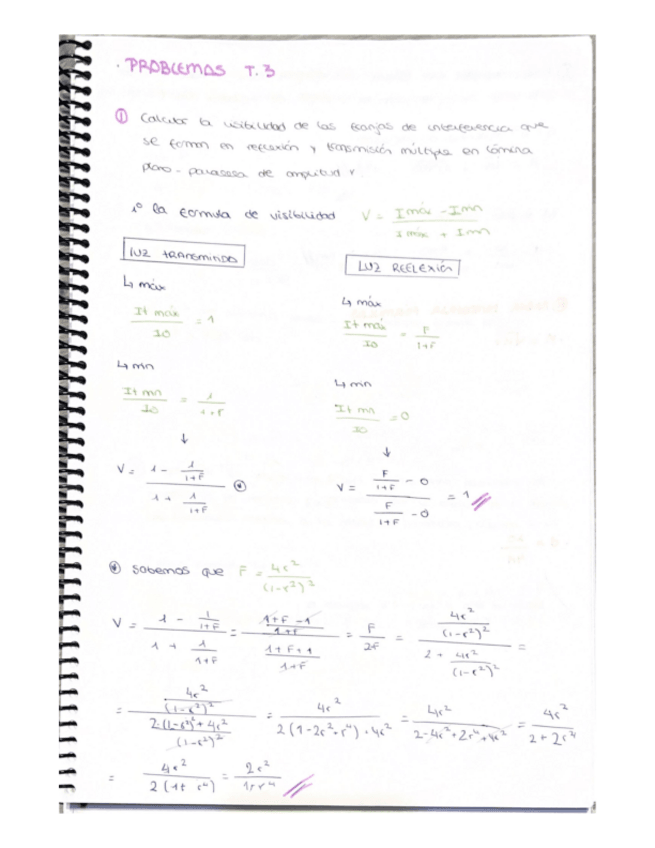 · PROBLEMAS T.3
① Calcular la visibilidad de las franjas de interferencia que
se forman en reflexión y transmisión múltiple en lámina
plano-paralela de amplitud r
1º la formula de visibilidad V = (Imáx - Imn) / (Imáx + Imn)
LUZ TRANSMITIDA
LUZ REFLEXIÓN
↳ máx
↳ máx
It máx / I0 = 1
It máx / I0 = F / (1+F)
↳ min
↳ min
It mn / I0 = 1 / (1+F)
It mn / I0 = 0
↓
↓
V = (1 - 1/(1+F)) / (1 + 1/(1+F)) ⊛
V = (F/(1+F) - 0) / (F/(1+F) - 0) = 1
⊛ Sabemos que F = 4r² / (1-r²)²
V = (1 - 1/(1+F)) / (1 + 1/(1+F)) = ((1+F-1)/(1+F)) / ((1+F+1)/(1+F)) = F / 2F = (4r²/(1-r²)²) / (2 + 4r²/(1-r²)²) =
= (4r²/(1-r²)²) / ((2·(1-r²)² + 4r²)/(1-r²)²) = 4r² / (2(1-2r²+r⁴)+4r²) = 4r² / (2-4r²+2r⁴+4r²) = 4r² / (2+2r⁴)
= 4r² / (2(1+r⁴)) = 2r² / (1+r⁴)